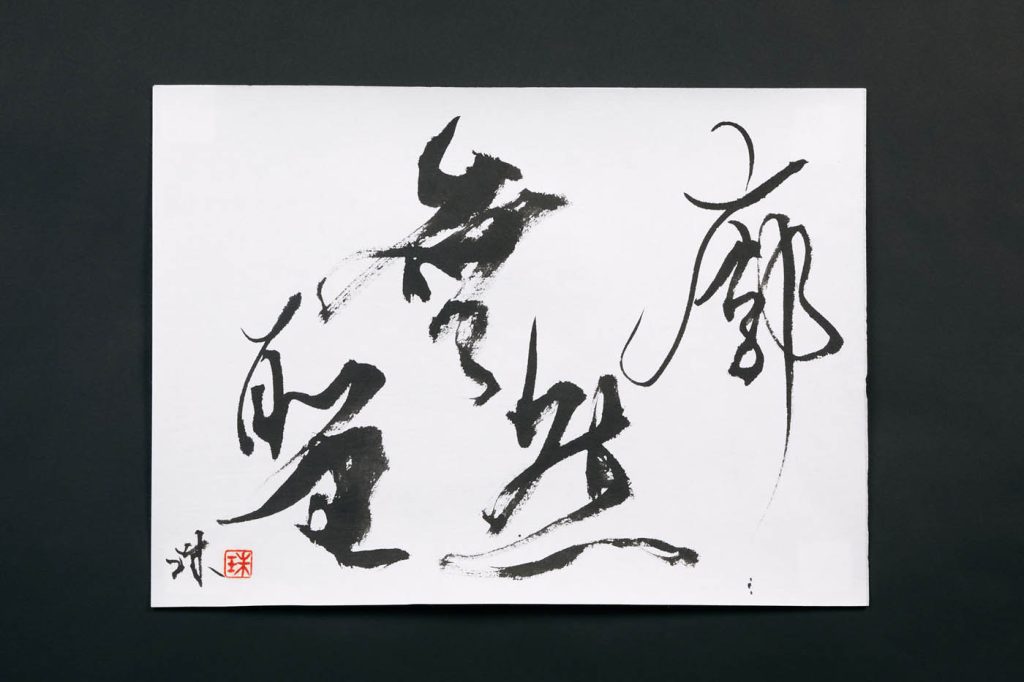 廓
然
無
聖
珠
珠